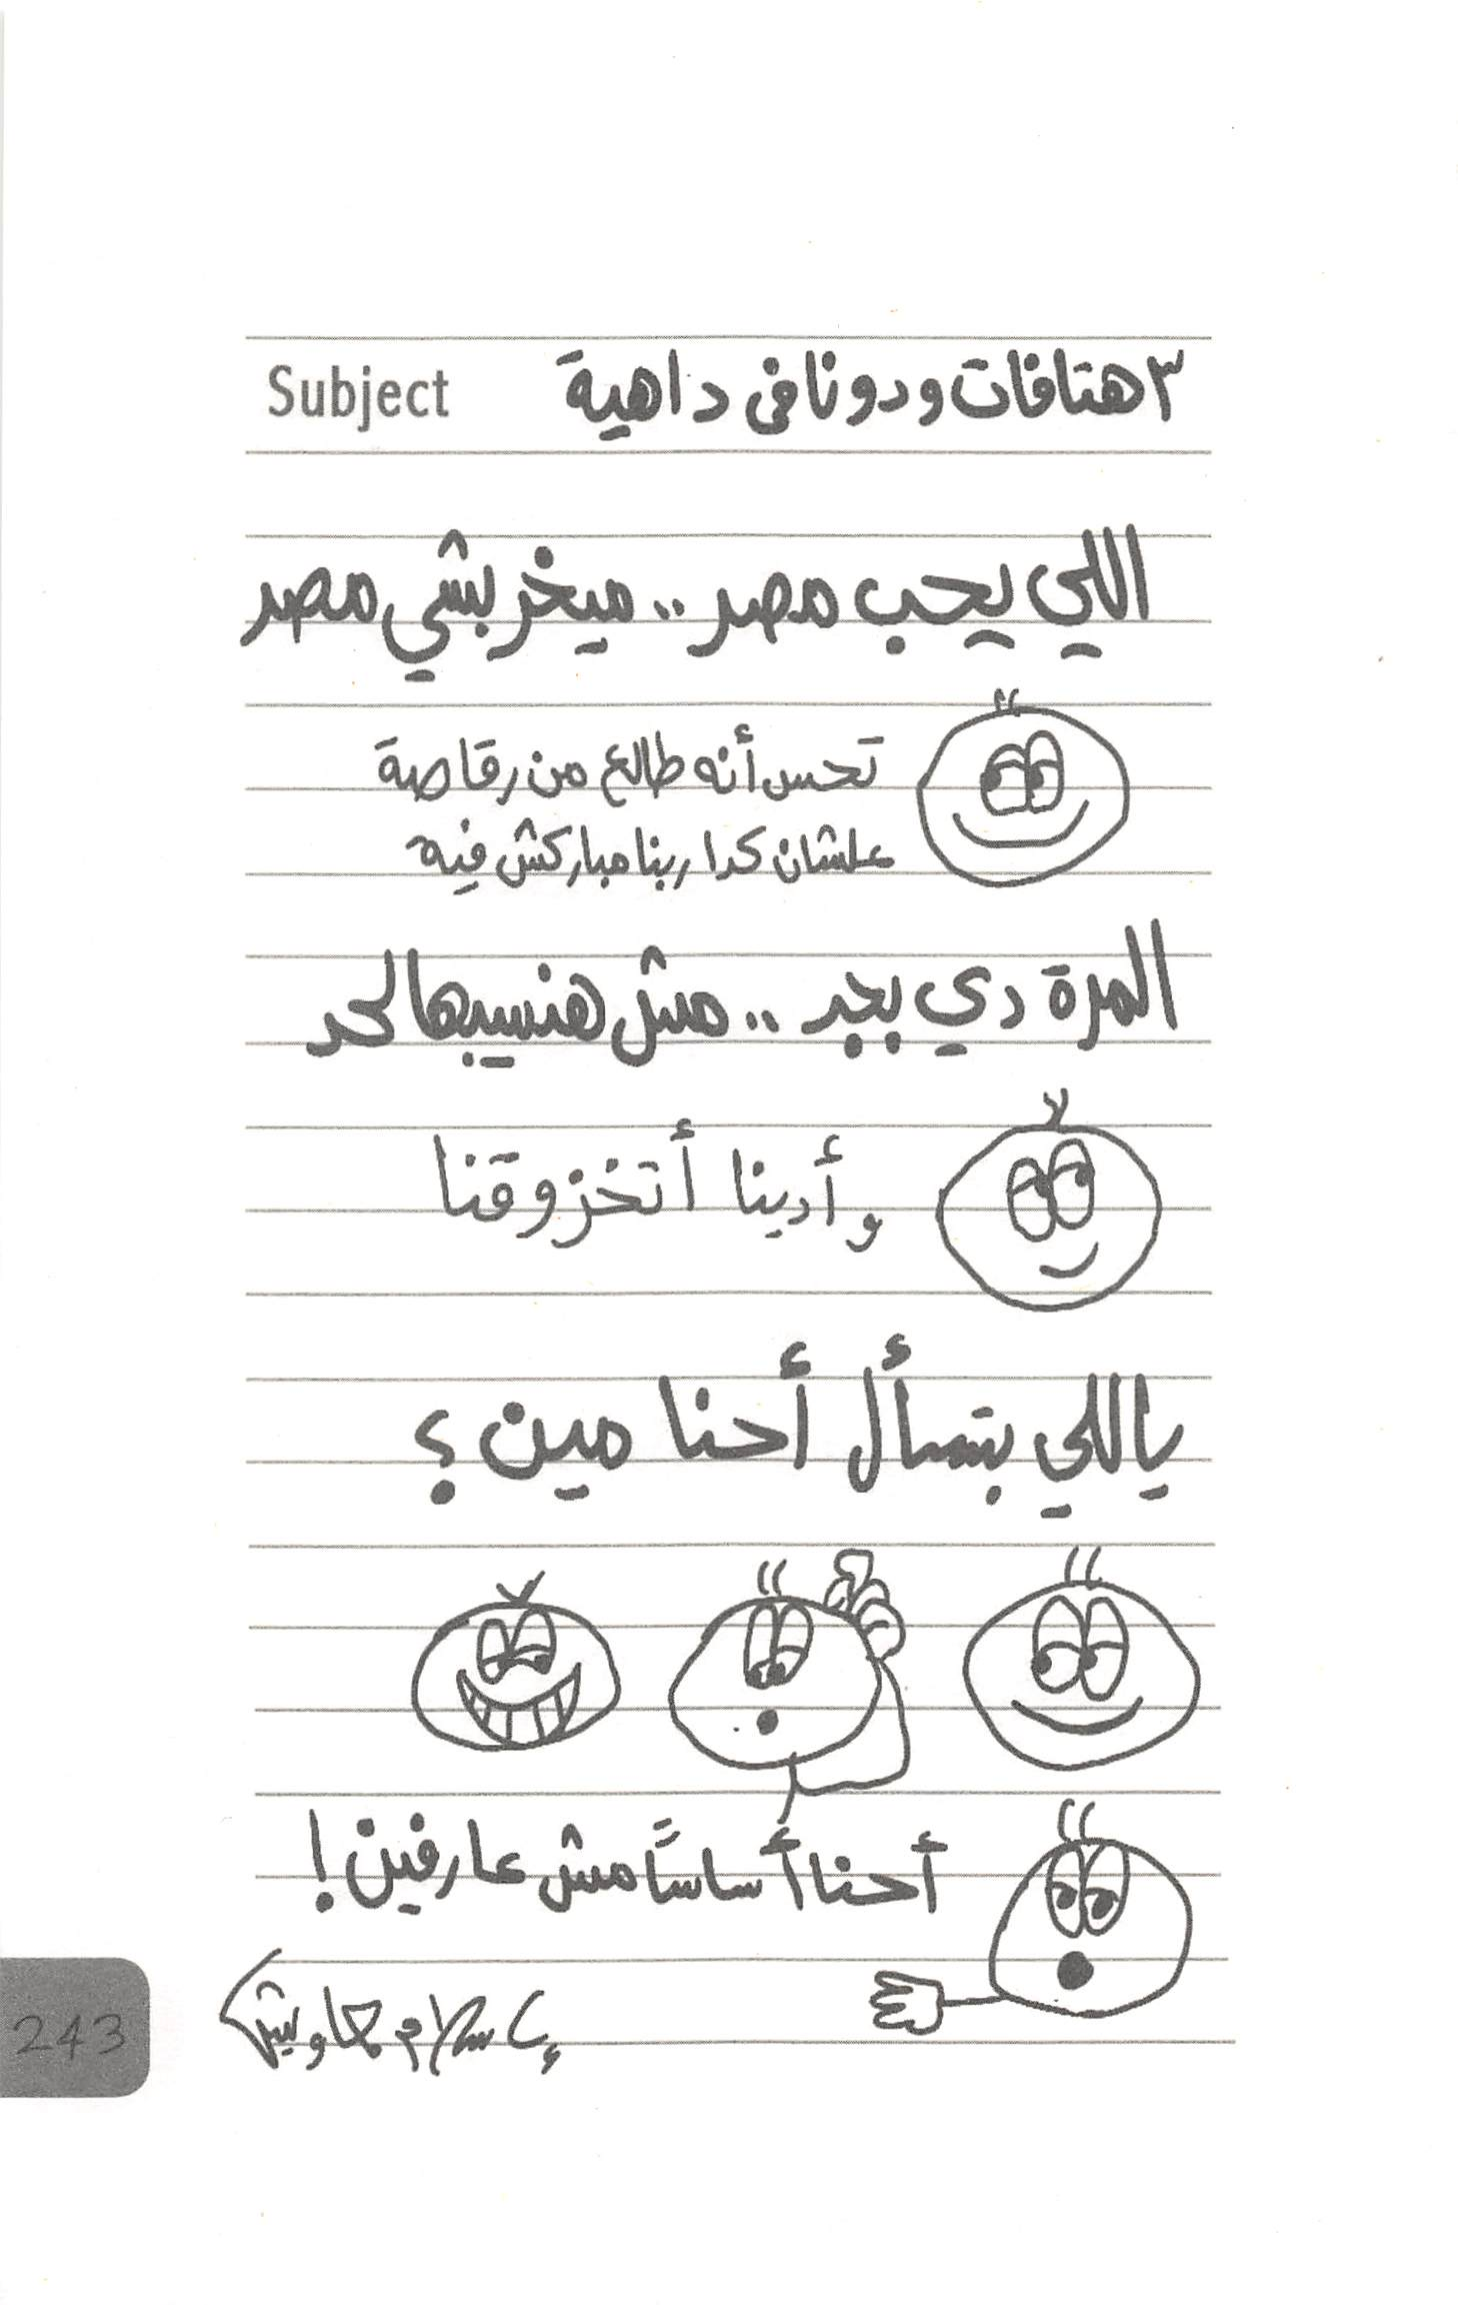 Subject ٣ هتافات ودونا فى داهية
اللي يحب مصر .. ميخربشي مصر
تحس أنه طالع من رقاصة
علشان كدا ربنا مباركش فيه
المرة دي بجد .. مش هنسيبها لحد
وأدينا أتخزوقنا
ياللي بتسأل أحنا مين؟
أحنا أساساً مش عارفين!
إسلام جاويش
243